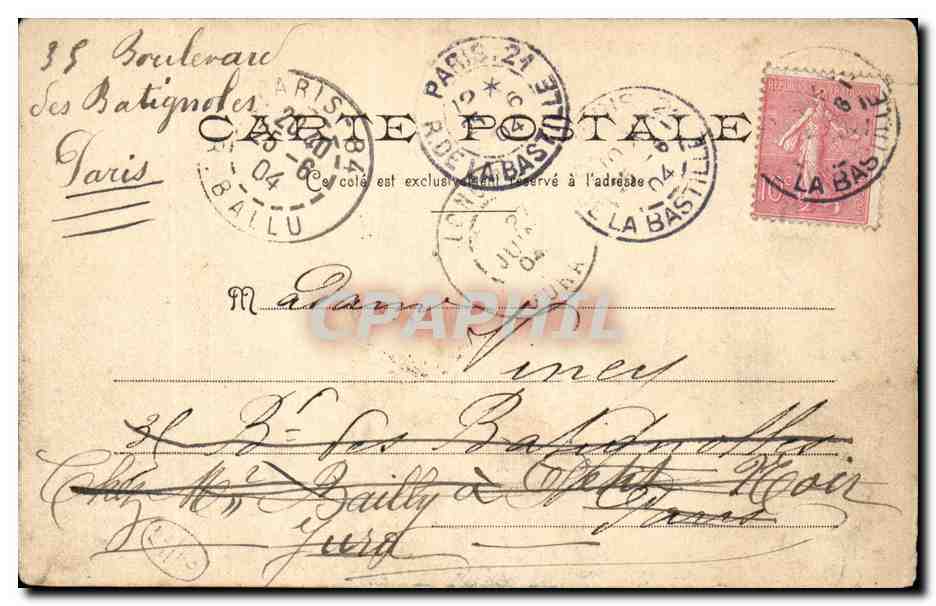 35 Boulevard
des Batignoles
Paris
CARTE POSTALE
Ce côté est exclusivement réservé à l'adresse
PARIS 84
20 40
25 -6
04
R. BALLU
PARIS 21
*
12
04
R. DE LA BASTILLE
LA BASTILLE
04
JUIN
04
JURA
LA BASTILLE
10c
Madame
Vincey
CPAPHIL
31 Bd des Batignolles
Chez Mr Bailly à Petit Noir
Paris
Jura